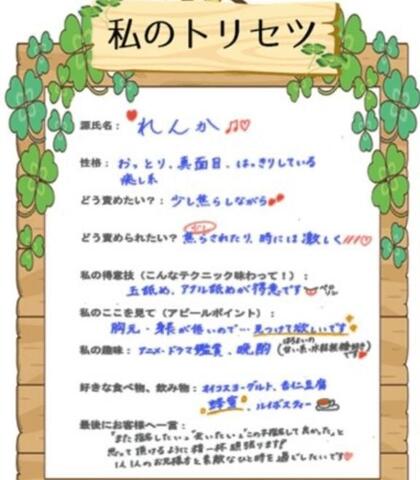 私のトリセツ
源氏名: れんか♫♡
性格: おっとり、真面目、はっきりしている
癒し系
どう責めたい?: 少し焦らしながら
どう責められたい? 焦らされたり、時には激しく!!!♡
私の得意技(こんなテクニック味わって!):
玉舐め、アナル舐めが得意です
私のここを見て(アピールポイント):
胸元・
が低いので… 見つけて欲しいです
私の趣味: アニメ・ドラマ鑑賞、晩酌(ほろよいの
です
好きな食べ物、飲み物: オイコスヨーグルト、杏仁豆腐
蜂蜜、ルイボスティー
最後にお客様へ一言:
"また指名したい" "会いたい" "この子指名して良かった"と
思って頂けるように精一杯頑張ります!
1人1人のお兄様方と素敵なひと時を過ごしたいです♡